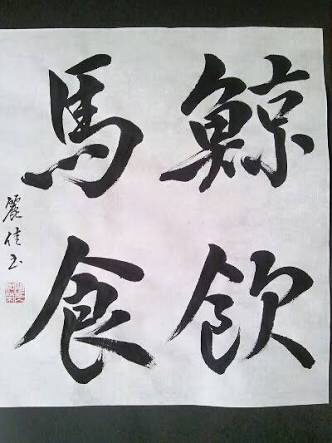 鯨飲
馬食
麗佳书